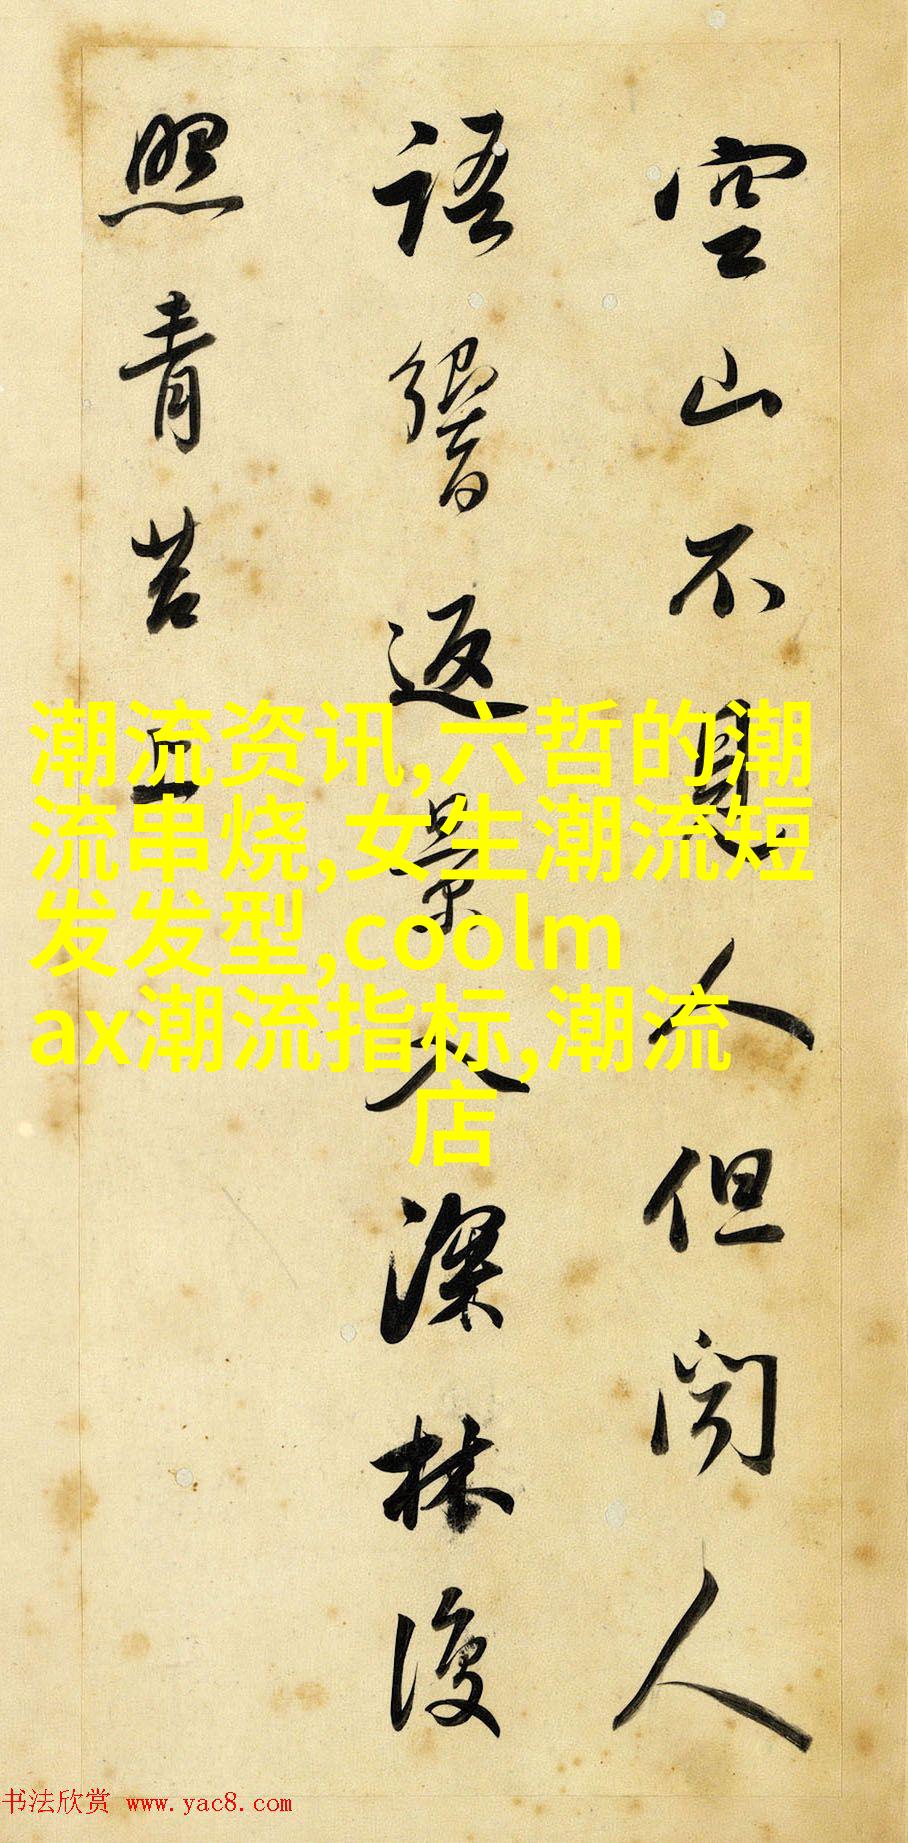 空山不見人但聞人
語響返景入深林復
照青苔上
潮流资讯,六哲的潮
流串烧,女生潮流短
发发型,coolm
ax潮流指标,潮流
店
书法欣赏 www.yac8.com